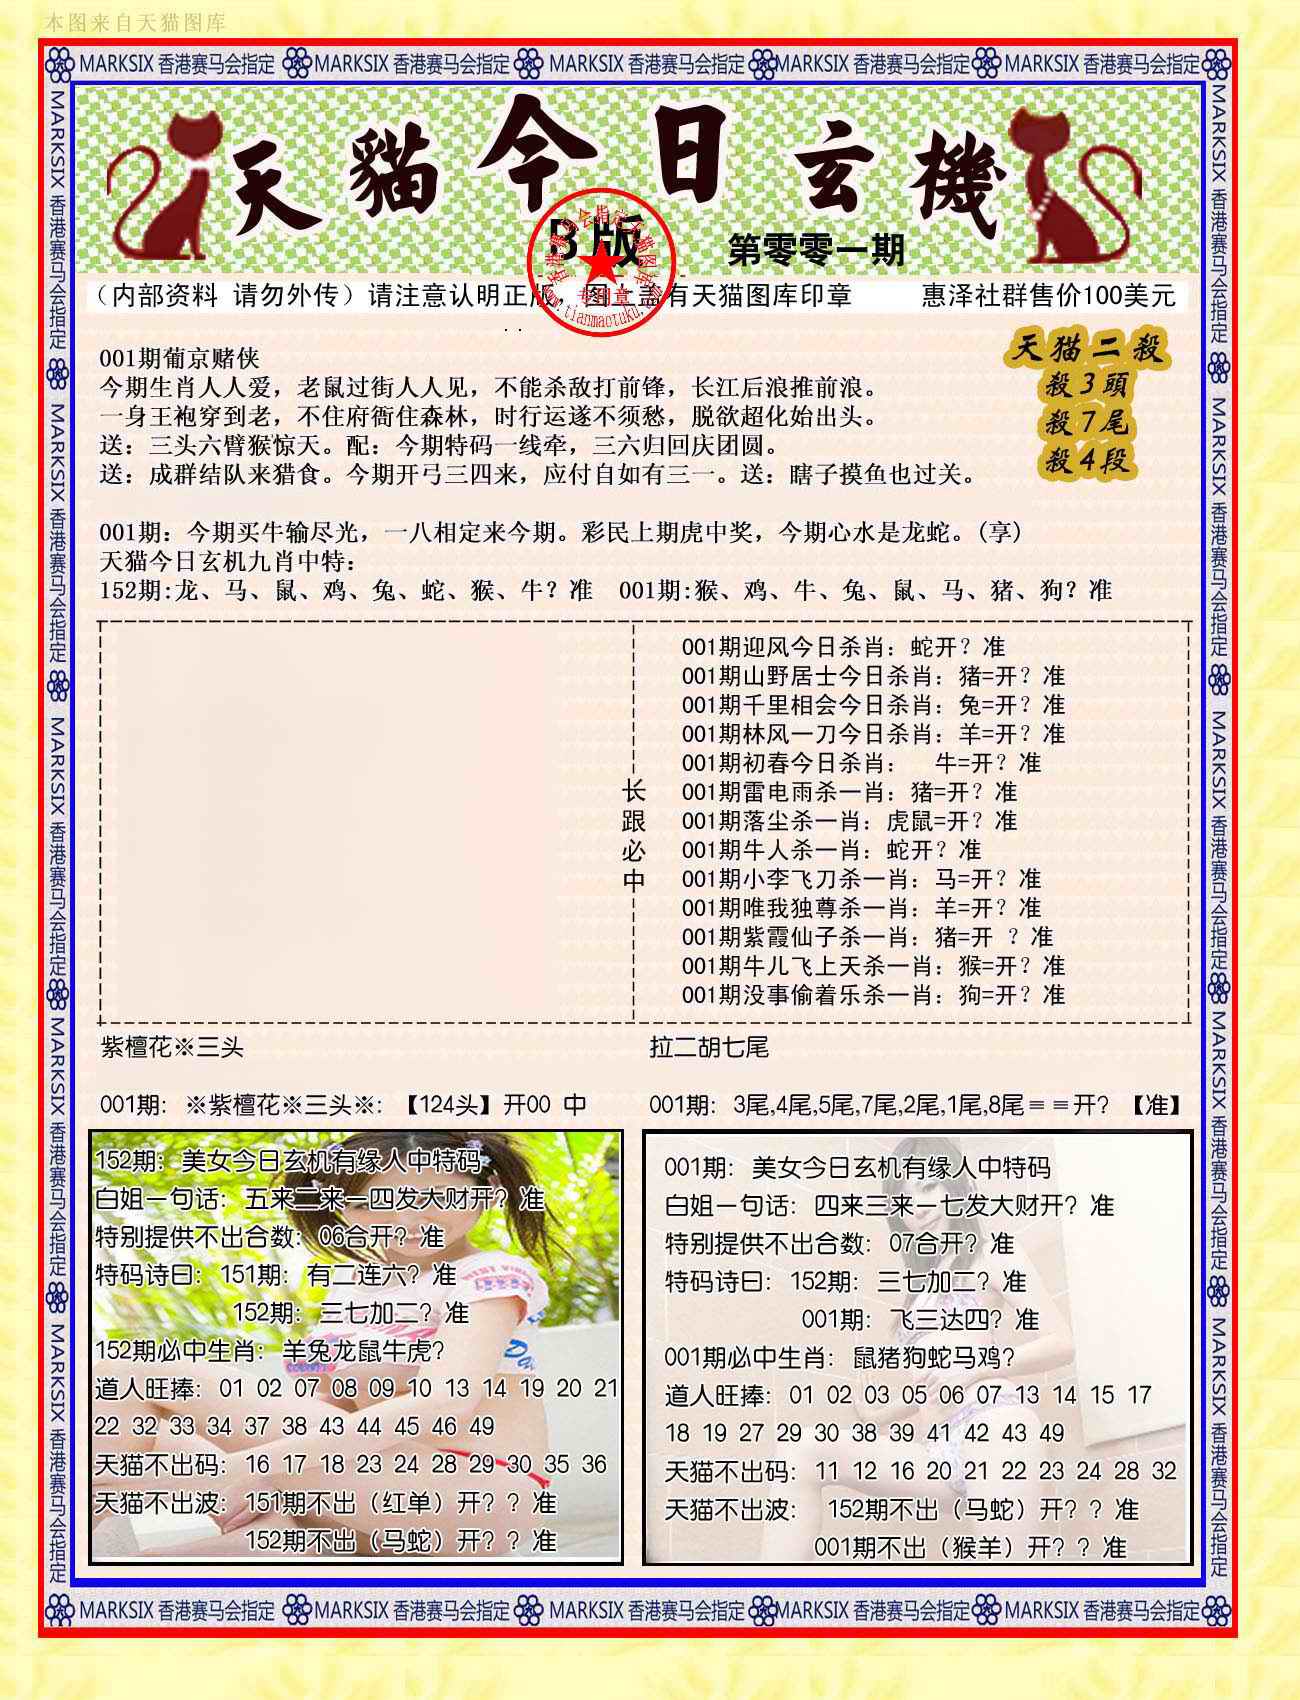 本图来自天猫图库
MARKSIX 香港赛马会指定 MARKSIX 香港赛马会指定 MARKSIX 香港赛马会指定 MARKSIX 香港赛马会指定 MARKSIX 香港赛马会指定
天貓今日玄機
B版
第零零一期
香港赛马会指定天猫图库
专用章
www.tianmaotuku.com
（内部资料 请勿外传）请注意认明正版，图上盖有天猫图库印章 惠泽社群售价100美元
天猫二殺
殺3頭
殺7尾
殺4段
001期葡京赌侠
今期生肖人人爱，老鼠过街人人见，不能杀敌打前锋，长江后浪推前浪。
一身王袍穿到老，不住府衙住森林，时行运遂不须愁，脱欲超化始出头。
送：三头六臂猴惊天。配：今期特码一线牵，三六归回庆团圆。
送：成群结队来猎食。今期开弓三四来，应付自如有三一。送：瞎子摸鱼也过关。
001期：今期买牛输尽光，一八相定来今期。彩民上期虎中奖，今期心水是龙蛇。(享)
天猫今日玄机九肖中特：
152期:龙、马、鼠、鸡、兔、蛇、猴、牛？准 001期:猴、鸡、牛、兔、鼠、马、猪、狗？准
长跟必中
001期迎风今日杀肖：蛇开？准
001期山野居士今日杀肖：猪=开？准
001期千里相会今日杀肖：兔=开？准
001期林风一刀今日杀肖：羊=开？准
001期初春今日杀肖： 牛=开？准
001期雷电雨杀一肖：猪=开？准
001期落尘杀一肖：虎鼠=开？准
001期牛人杀一肖：蛇开？准
001期小李飞刀杀一肖：马=开？准
001期唯我独尊杀一肖：羊=开？准
001期紫霞仙子杀一肖：猪=开 ？准
001期牛儿飞上天杀一肖：猴=开？准
001期没事偷着乐杀一肖：狗=开？准
紫檀花※三头
拉二胡七尾
001期：※紫檀花※三头※：【124头】开00 中
001期：3尾,4尾,5尾,7尾,2尾,1尾,8尾≡≡开？【准】
152期：美女今日玄机有缘人中特码
白姐一句话：五来二来一四发大财开？准
特别提供不出合数：06合开？准
特码诗曰：151期：有二连六？准
152期：三七加二？准
152期必中生肖：羊兔龙鼠牛虎？
道人旺捧：01 02 07 08 09 10 13 14 19 20 21
22 32 33 34 37 38 43 44 45 46 49
天猫不出码：16 17 18 23 24 28 29 30 35 36
天猫不出波：151期不出（红单）开？？准
152期不出（马蛇）开？？准
001期：美女今日玄机有缘人中特码
白姐一句话：四来三来一七发大财开？准
特别提供不出合数：07合开？准
特码诗曰：152期：三七加二？准
001期：飞三达四？准
001期必中生肖：鼠猪狗蛇马鸡？
道人旺捧：01 02 03 05 06 07 13 14 15 17
18 19 27 29 30 38 39 41 42 43 49
天猫不出码：11 12 16 20 21 22 23 24 28 32
天猫不出波： 152期不出（马蛇）开？？准
001期不出（猴羊）开？？准
MARKSIX 香港赛马会指定 MARKSIX 香港赛马会指定 MARKSIX 香港赛马会指定 MARKSIX 香港赛马会指定 MARKSIX 香港赛马会指定
MARKSIX 香港赛马会指定 MARKSIX 香港赛马会指定 MARKSIX 香港赛马会指定 MARKSIX 香港赛马会指定 MARKSIX 香港赛马会指定
MARKSIX 香港赛马会指定 MARKSIX 香港赛马会指定 MARKSIX 香港赛马会指定 MARKSIX 香港赛马会指定 MARKSIX 香港赛马会指定